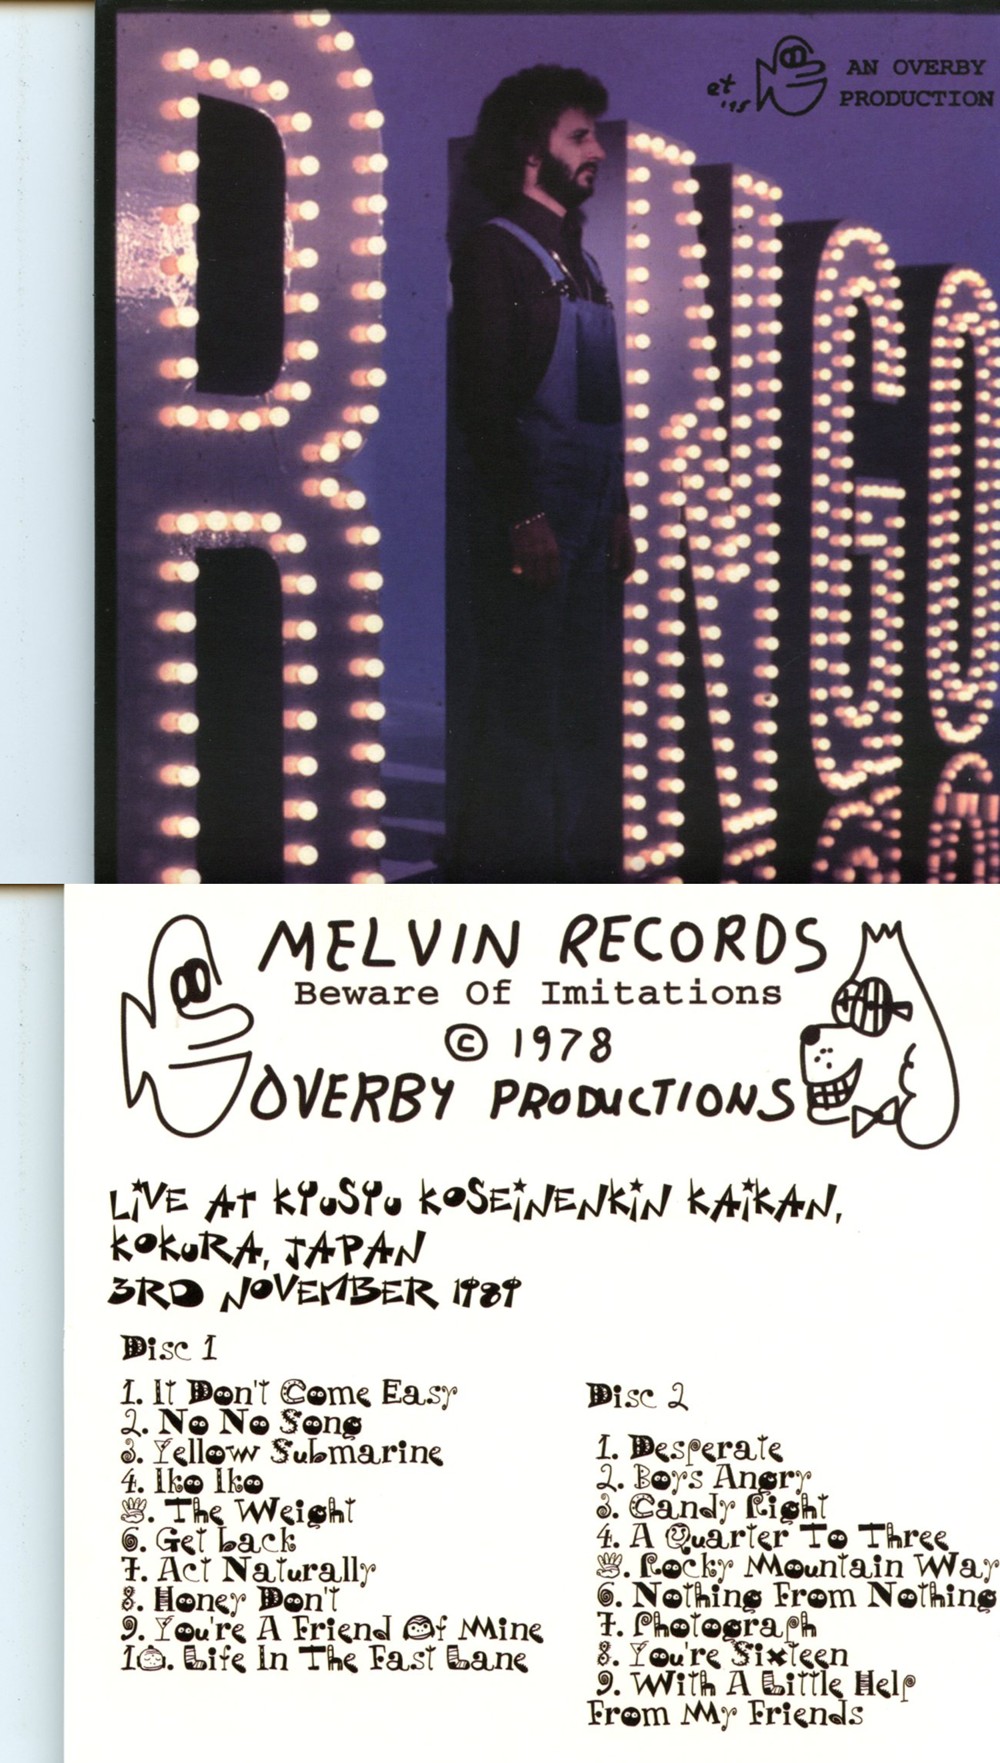 et '15
AN OVERBY
PRODUCTION
RINGO
MELVIN RECORDS
Beware Of Imitations
© 1978
OVERBY PRODUCTIONS
LiVE At KYuSYu KoSEiNENKiN KAiKAN,
KoKuRA, JAPAN
3RD NoVEMBER 1989
Disc 1
1. It Don't Come Easy
2. No No Song
3. Yellow Submarine
4. Iko Iko
5. The Weight
6. Get back
7. Act Naturally
8. Honey Don't
9. You're A Friend Of Mine
10. Life In The Fast Lane
Disc 2
1. Desperate
2. Boys Angry
3. Candy Right
4. A Quarter To Three
5. Rocky Mountain Way
6. Nothing From Nothing
7. Photograph
8. You're Sixteen
9. With A Little Help
From My Friends